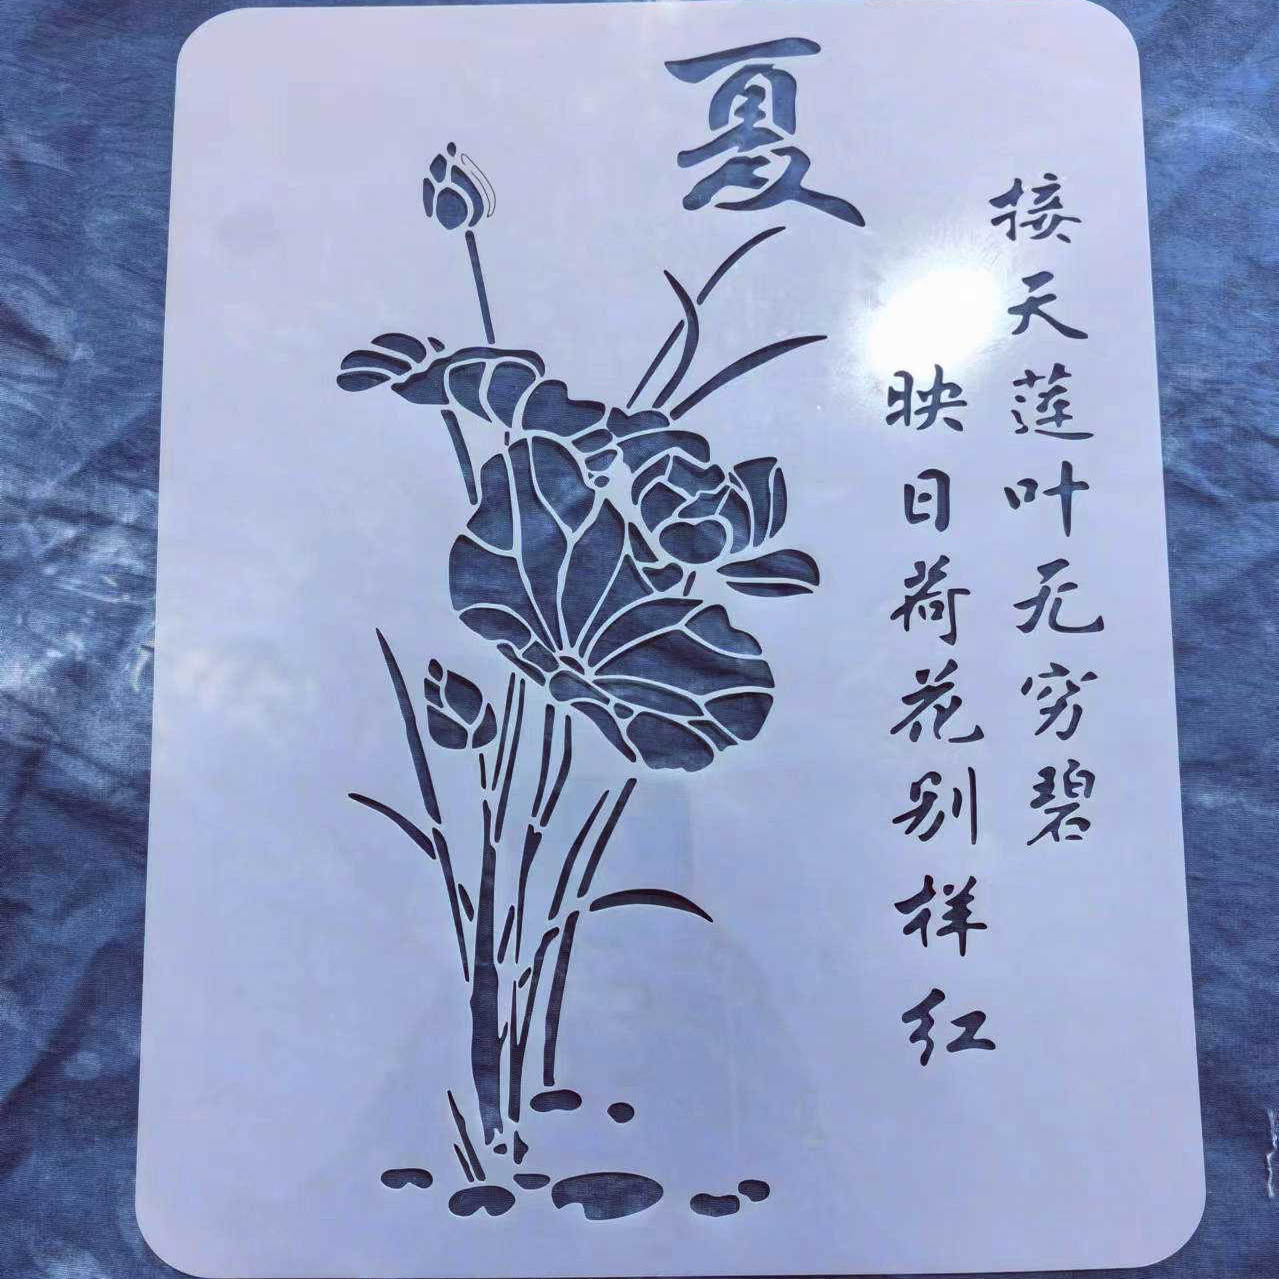 夏
接天莲叶无穷碧
映日荷花别样红